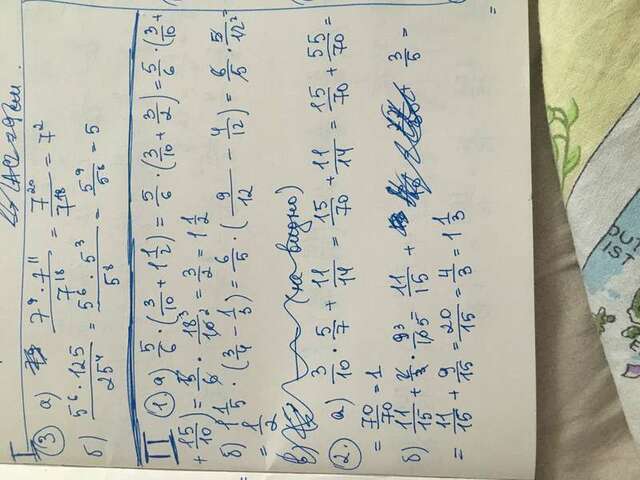 I
③ а) 7⁹ · 7¹¹ / 7¹⁸ = 7²⁰ / 7¹⁸ = 7²
б) 5⁶ · 125 / 25⁴ = 5⁶ · 5³ / 5⁸ = 5⁹ / 5⁸ = 5
II
① а) 5/6 · (3/10 + 1 1/2) = 5/6 · (3/10 + 3/2) = 5/6 · (3/10 +
+ 15/10) = 5/6 · 18³/10² = 3/2 = 1 1/2
б) 1 1/5 · (3/4 − 1/3) = 6/5 · (9/12 − 4/12) = 6/5 · 5/12² =
= 1/2
в) (не видно)
②. а) 3/10 · 5/7 + 11/14 = 15/70 + 11/14 = 15/70 + 55/70 =
= 70/70 = 1
б) 11/15 + · 9³/ 11/15 + 3/5 =
= 11/15 + 9/15 = 20/15 = 4/3 = 1 1/3
OUT
IST